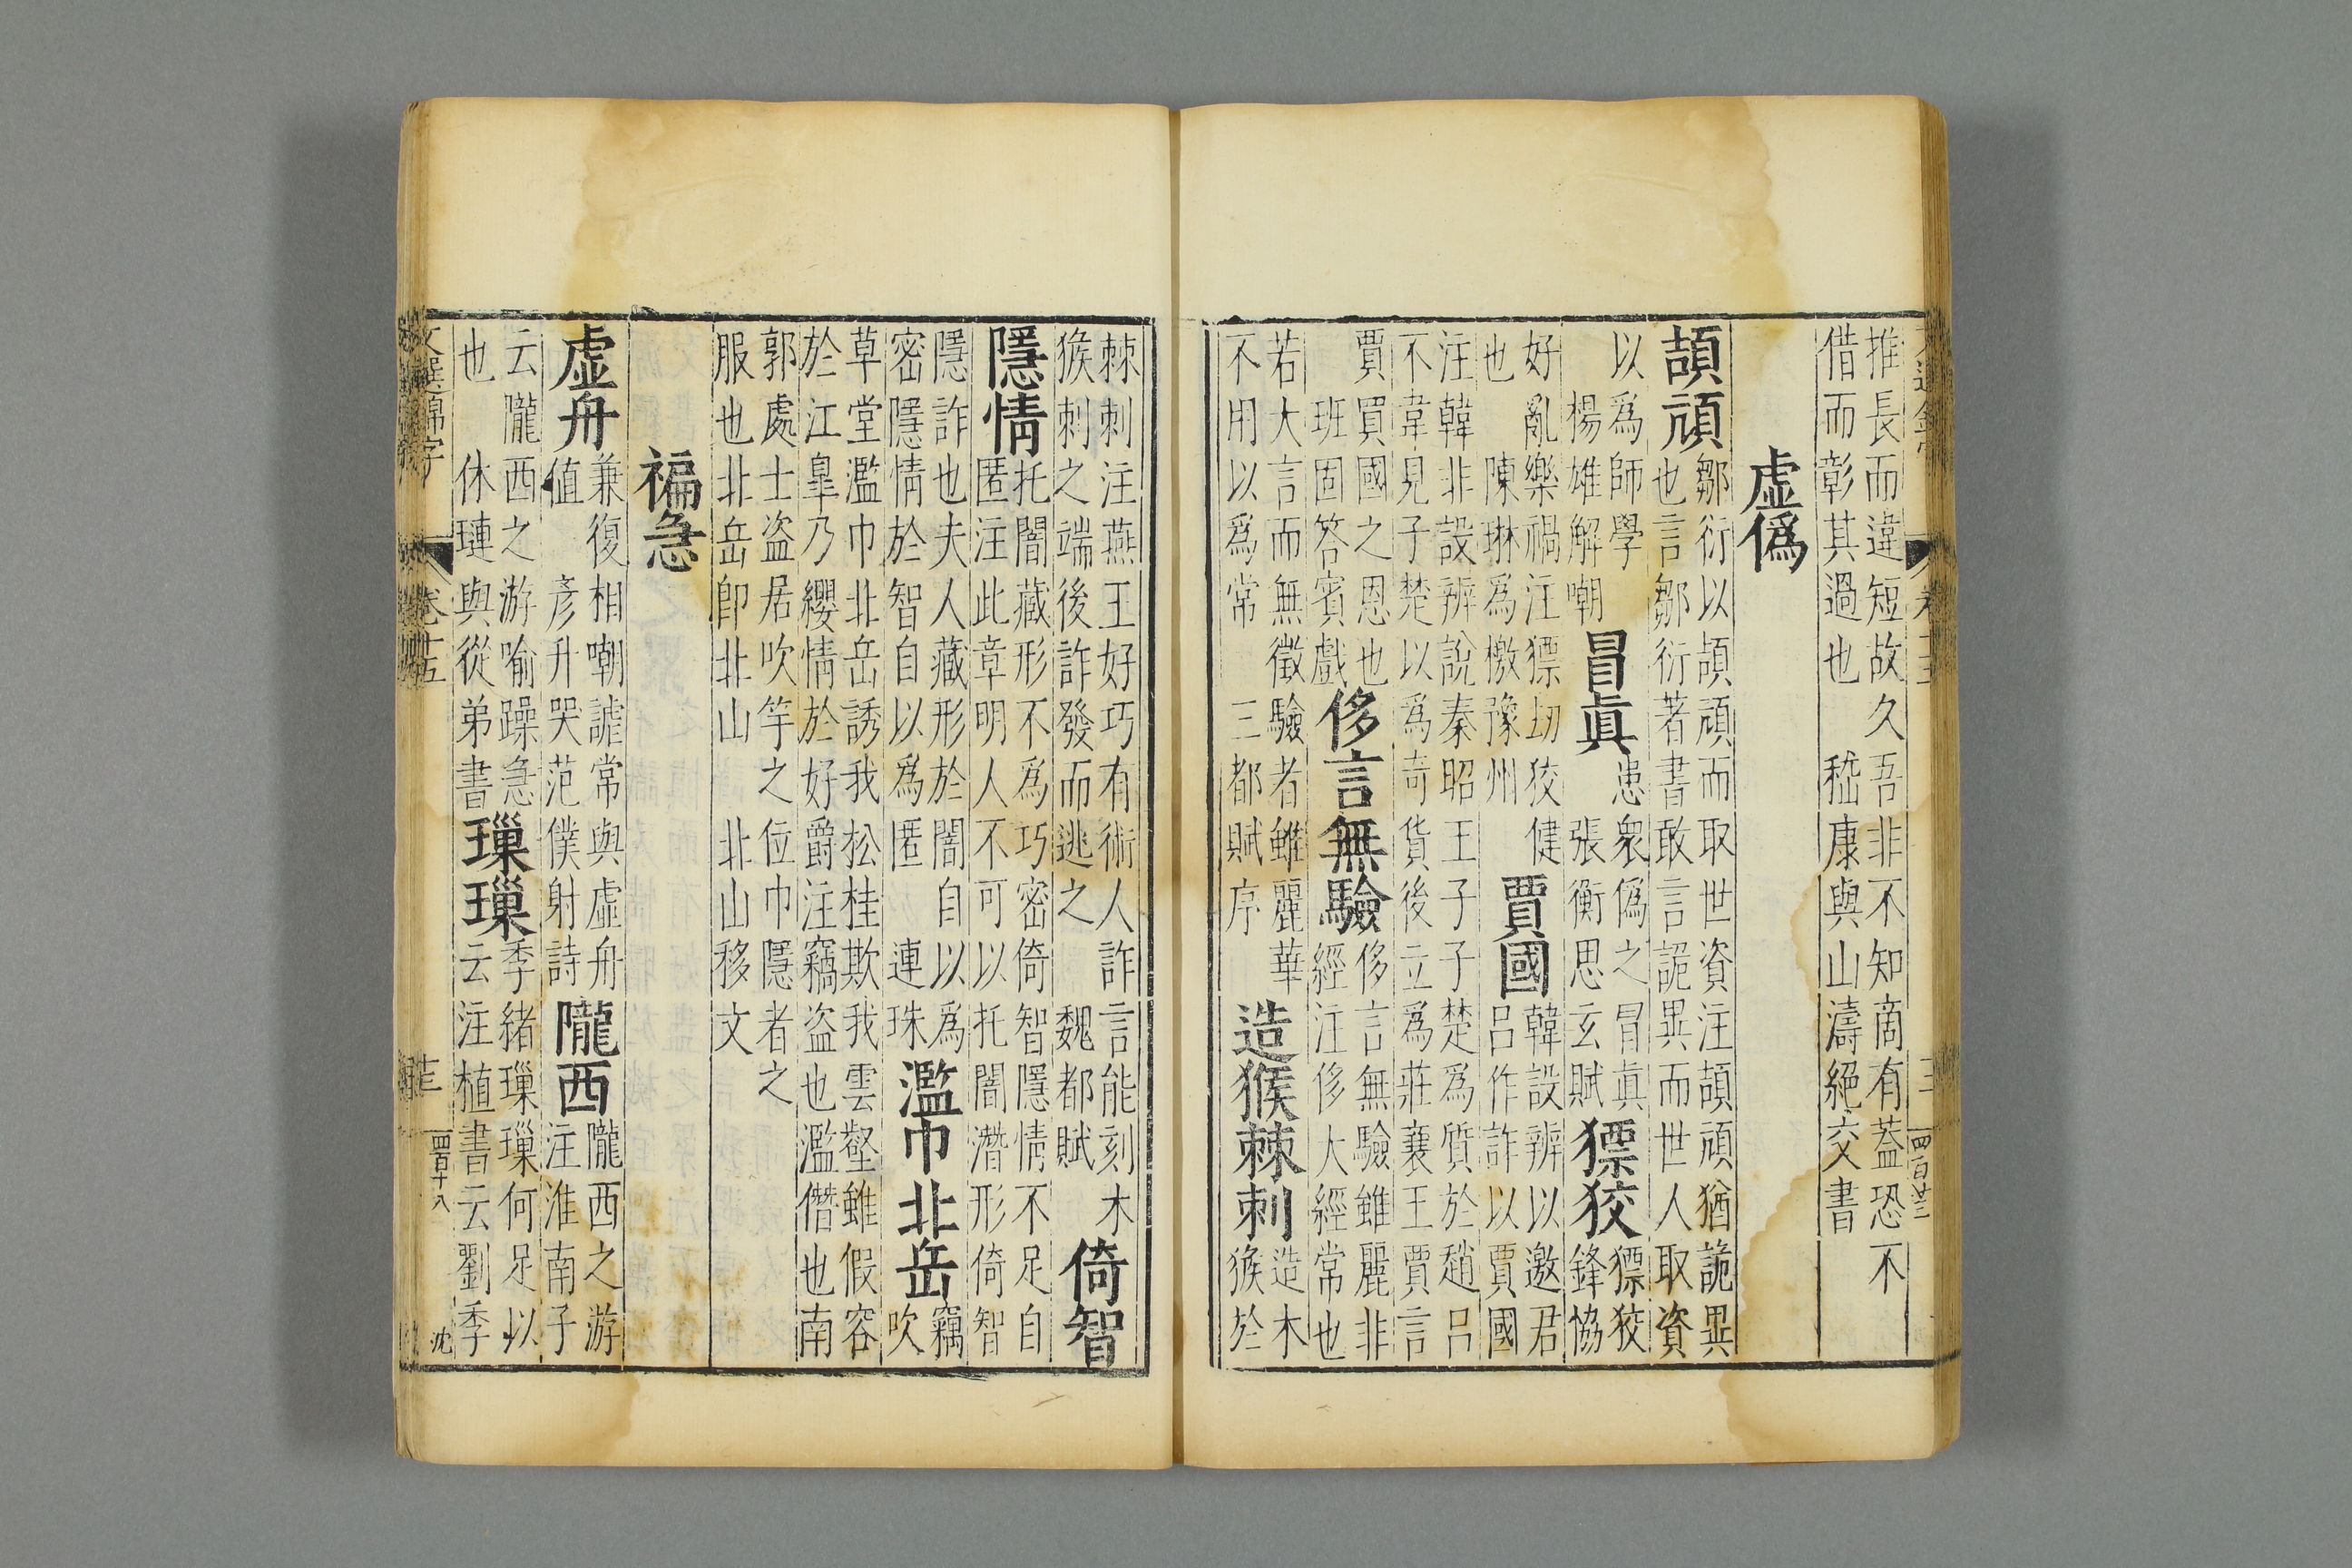 推長而違短故久吾非不知啇有蓋恐不
借而彰其過也　嵇康與山濤絕交書
虛僞
頡頏
鄒衍以頡頏而取世資注頡頏猶詭異
也言鄒衍著書敢言詭異而世人取資
以爲師學
楊雄解嘲
冒眞
患衆僞之冒眞
張衡思玄賦
獟狡
獟狡
鋒協
好亂樂禍注獟刼狡健
也　陳琳爲檄豫州
賈國
韓設辨以邀君
呂作詐以賈國
注韓非設辨說秦昭王子子楚爲質於趙呂
不韋見子楚以爲奇貨後立爲莊襄王賈言
賈買國之恩也
班固答賓戲
侈言無驗
侈言無驗雖麗非
經注侈大經常也
若大言而無徵驗者雖麗華
不用以爲常　三都賦序
造猴棘刺
造木
猴於
棘刺注燕王好巧有術人詐言能刻木
猴刺之端後詐發而逃之　魏都賦
倚智
隱情
托闇藏形不爲巧密倚智隱情不足自
匿注此章明人不可以托闇潛形倚智
隱詐也夫人藏形於闇自以爲
密隱情於智自以爲匿　連珠
濫巾北岳
竊
吹
草堂濫巾北岳誘我松桂欺我雲壑雖假容
於江皐乃纓情於好爵注竊盜也濫僭也南
郭處士盜居吹竽之位巾隱者之
服也北岳卽北山　北山移文
褊急
虛舟
兼復相嘲謔常與虛舟
値　彥升哭范僕射詩
隴西
隴西之游
注淮南子
云隴西之游喻躁急
也　休璉與從弟書
璅璅
季緒璅璅何足以
云注植書云劉季
文選錦字
卷十五
十三
四百十八
沈